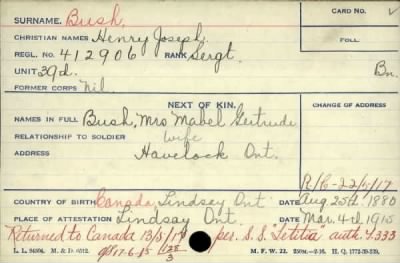 SURNAME. Bush. CARD NO. V
CHRISTIAN NAMES Henry Joseph. FOLL.
REGL. NO. 412906 RANK Sergt.
UNIT 39d. Bn.
FORMER CORPS Nil.
NEXT OF KIN. CHANGE OF ADDRESS
NAMES IN FULL Bush, Mrs Mabel Gertrude
RELATIONSHIP TO SOLDIER wife
ADDRESS Havelock Ont.
R/C-22/5/17
COUNTRY OF BIRTH Canada Lindsay Ont. DATE Aug 25th 1880
PLACE OF ATTESTATION Lindsay Ont. DATE Mar. 4th 1915
Returned to Canada per. S.S. "Letitia" auth. Y.333
L. L. M. & D. M. F. W. 22. H. Q. 1772-39-339.